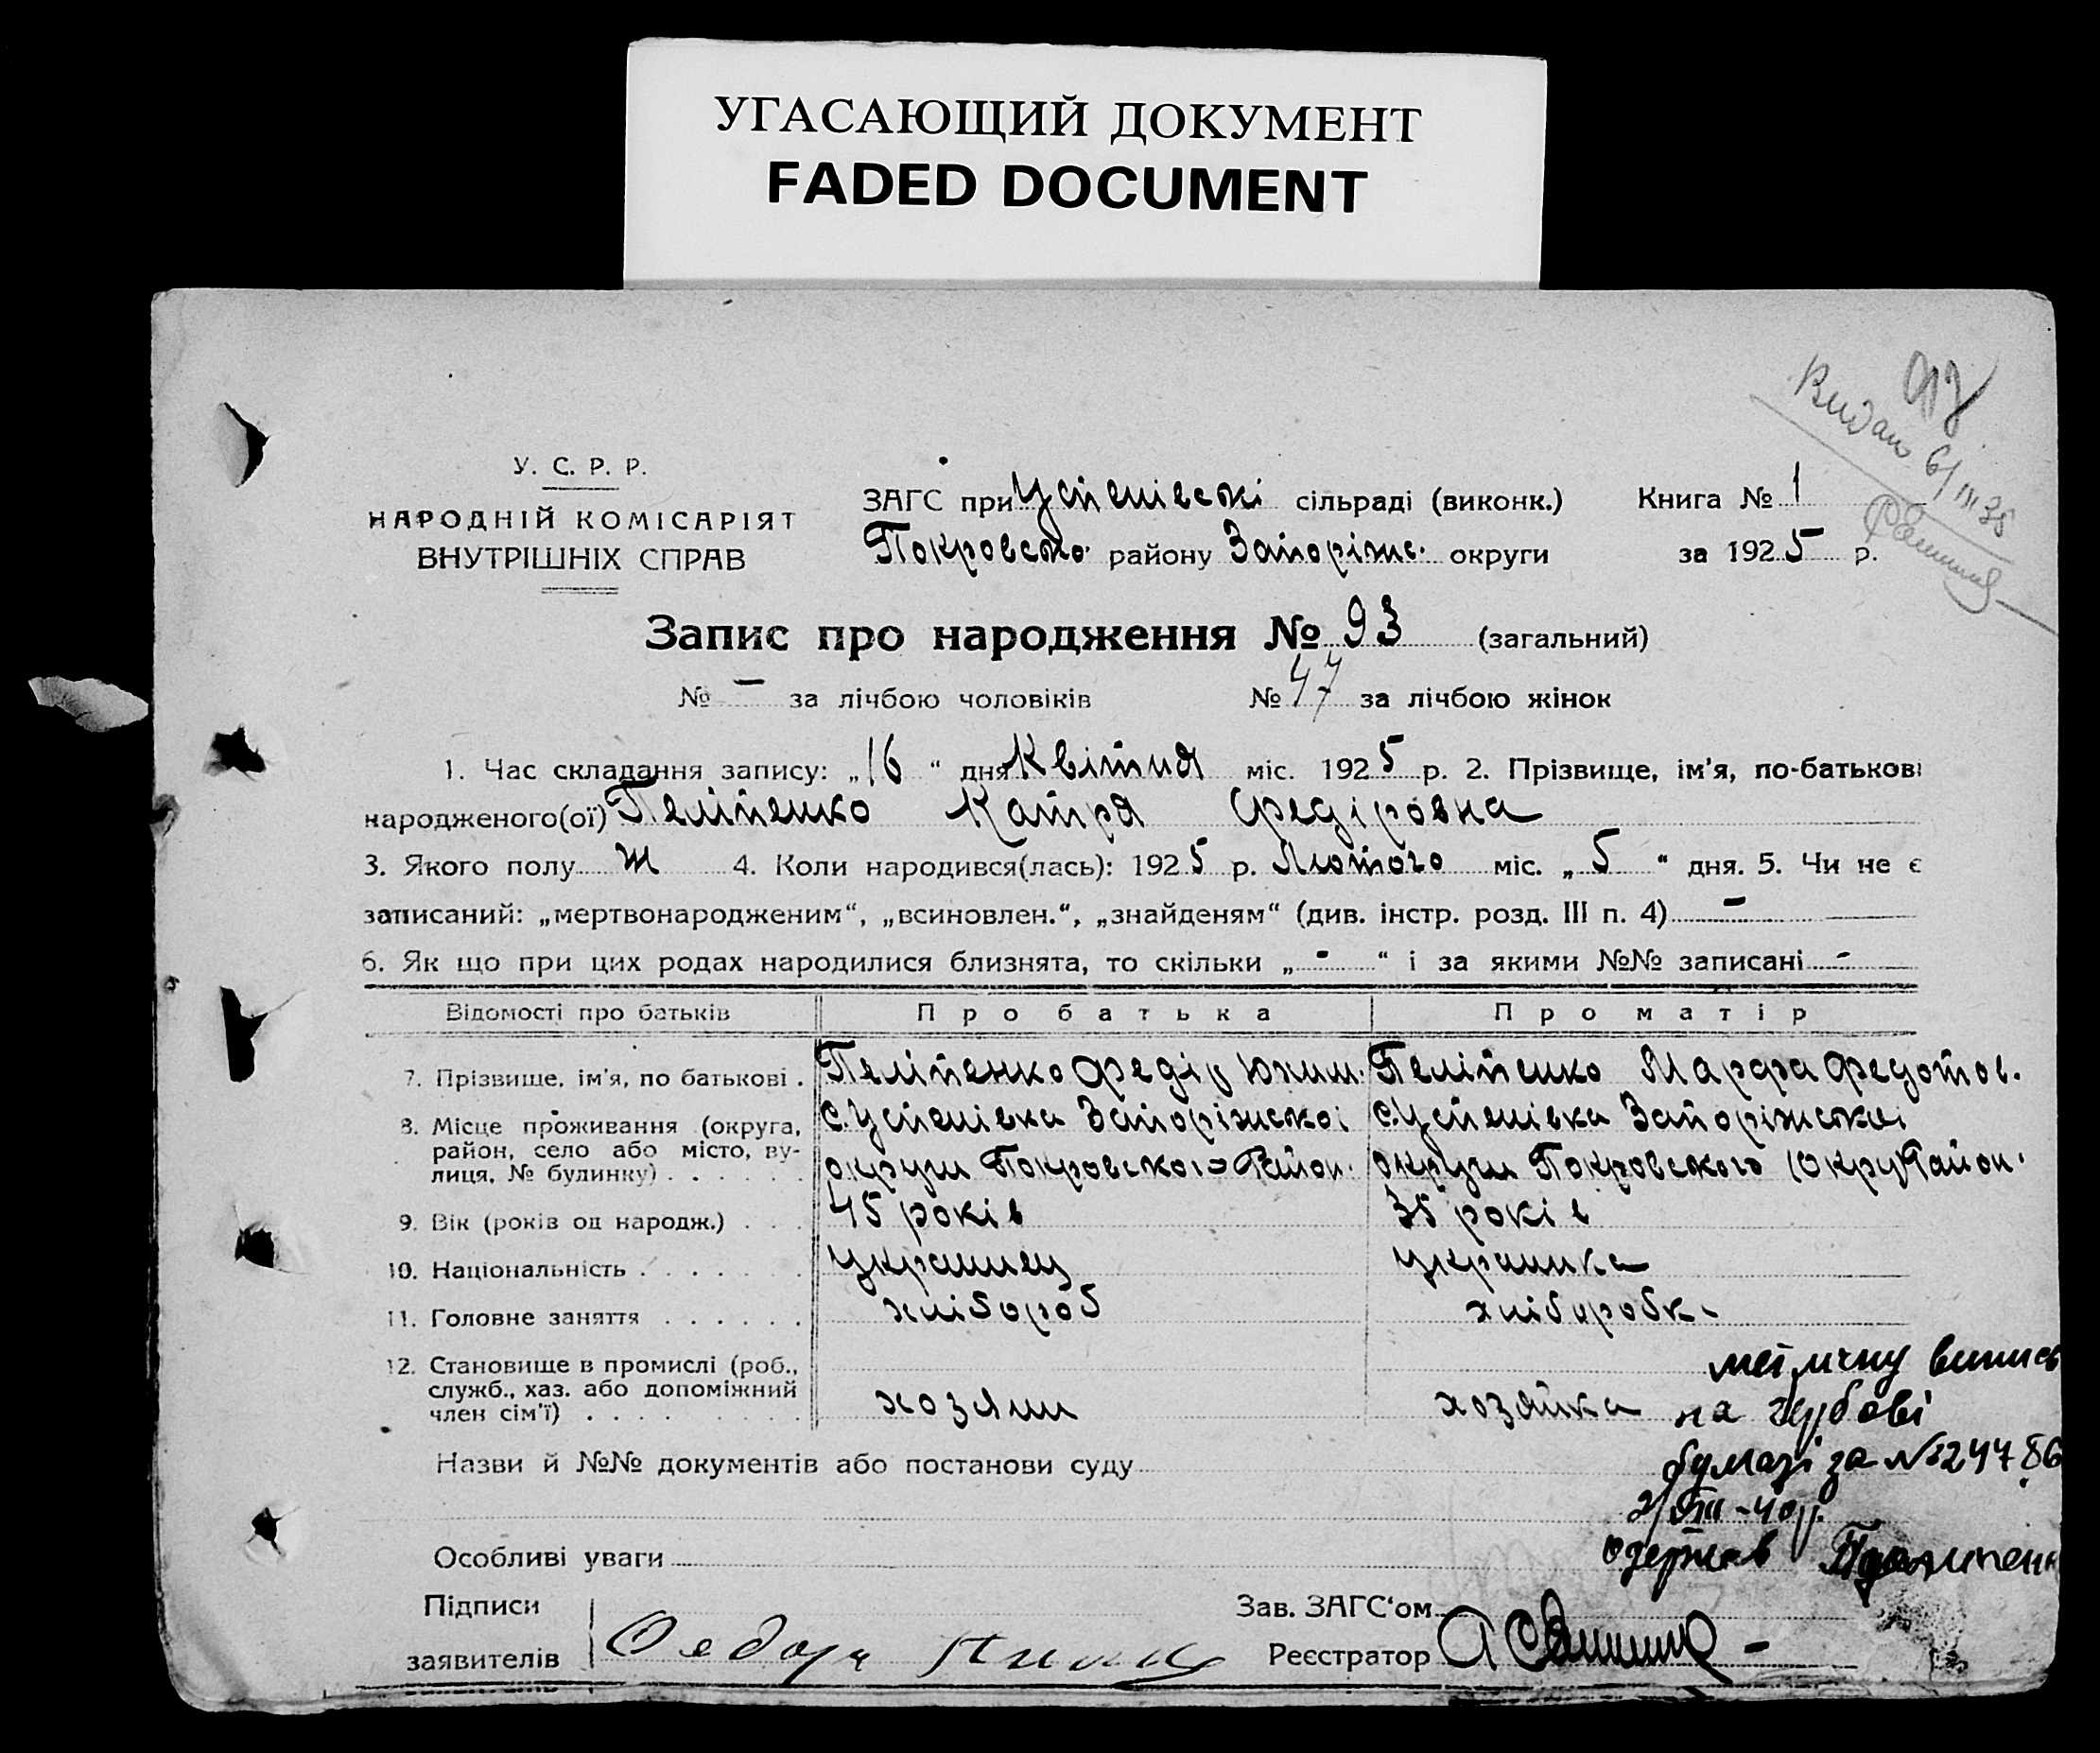 УГАСАЮЩИЙ ДОКУМЕНТ
FADED DOCUMENT
Видано 6/III 35
У. С. Р. Р.
НАРОДНІЙ КОМІСАРІЯТ
ВНУТРІШНІХ СПРАВ
ЗАГС при Успенівскі сільраді (виконк.) Книга № 1
Покровсько району Запоріжс. округи за 1925 р.
Запис про народження № 93 (загальний)
№ – за лічбою чоловіків № 47 за лічбою жінок
1. Час складання запису: „16“ дня Квітня міс. 1925 р. 2. Прізвище, ім'я, по-батькові
народженого(ої) Пеліпенко Катря Федіровна
3. Якого полу ж 4. Коли народився(лась): 1925 р. Лютого міс. „5“ дня. 5. Чи не є
записаний: „мертвонародженим“, „всиновлен.“, „знайденям“ (див. інстр. розд. III п. 4) –
6. Як що при цих родах народилися близнята, то скільки „-“ і за якими №№ записані -
Відомості про батьків Про батька Про матір
7. Прізвище, ім'я, по батькові . Пеліпенко Федір Юхим. Пеліпенко Марфа Федотов.
8. Місце проживання (округа, с. Успенівка Запоріжської с. Успенівка Запоріжської
район, село або місто, ву-
лиця, № будинку) . . . . . . округи Покровського Район. округи Покровського (окру) Район.
9. Вік (років од народж.) . . . 45 років 35 років
10. Національність . . . . . . . украинец украинка
11. Головне заняття . . . . . . хлібороб хліборобка
12. Становище в промислі (роб.,
служб., хаз. або допоміжний
член сім'ї) . . . . . . . . . хозяин хозяйка
метричну випись
на гербові
бумазі за № 24786
2/VIII-40 р.
одержав
Назви й №№ документів або постанови суду
Особливі уваги
Підписи
заявителів
Зав. ЗАГС'ом
Реєстратор